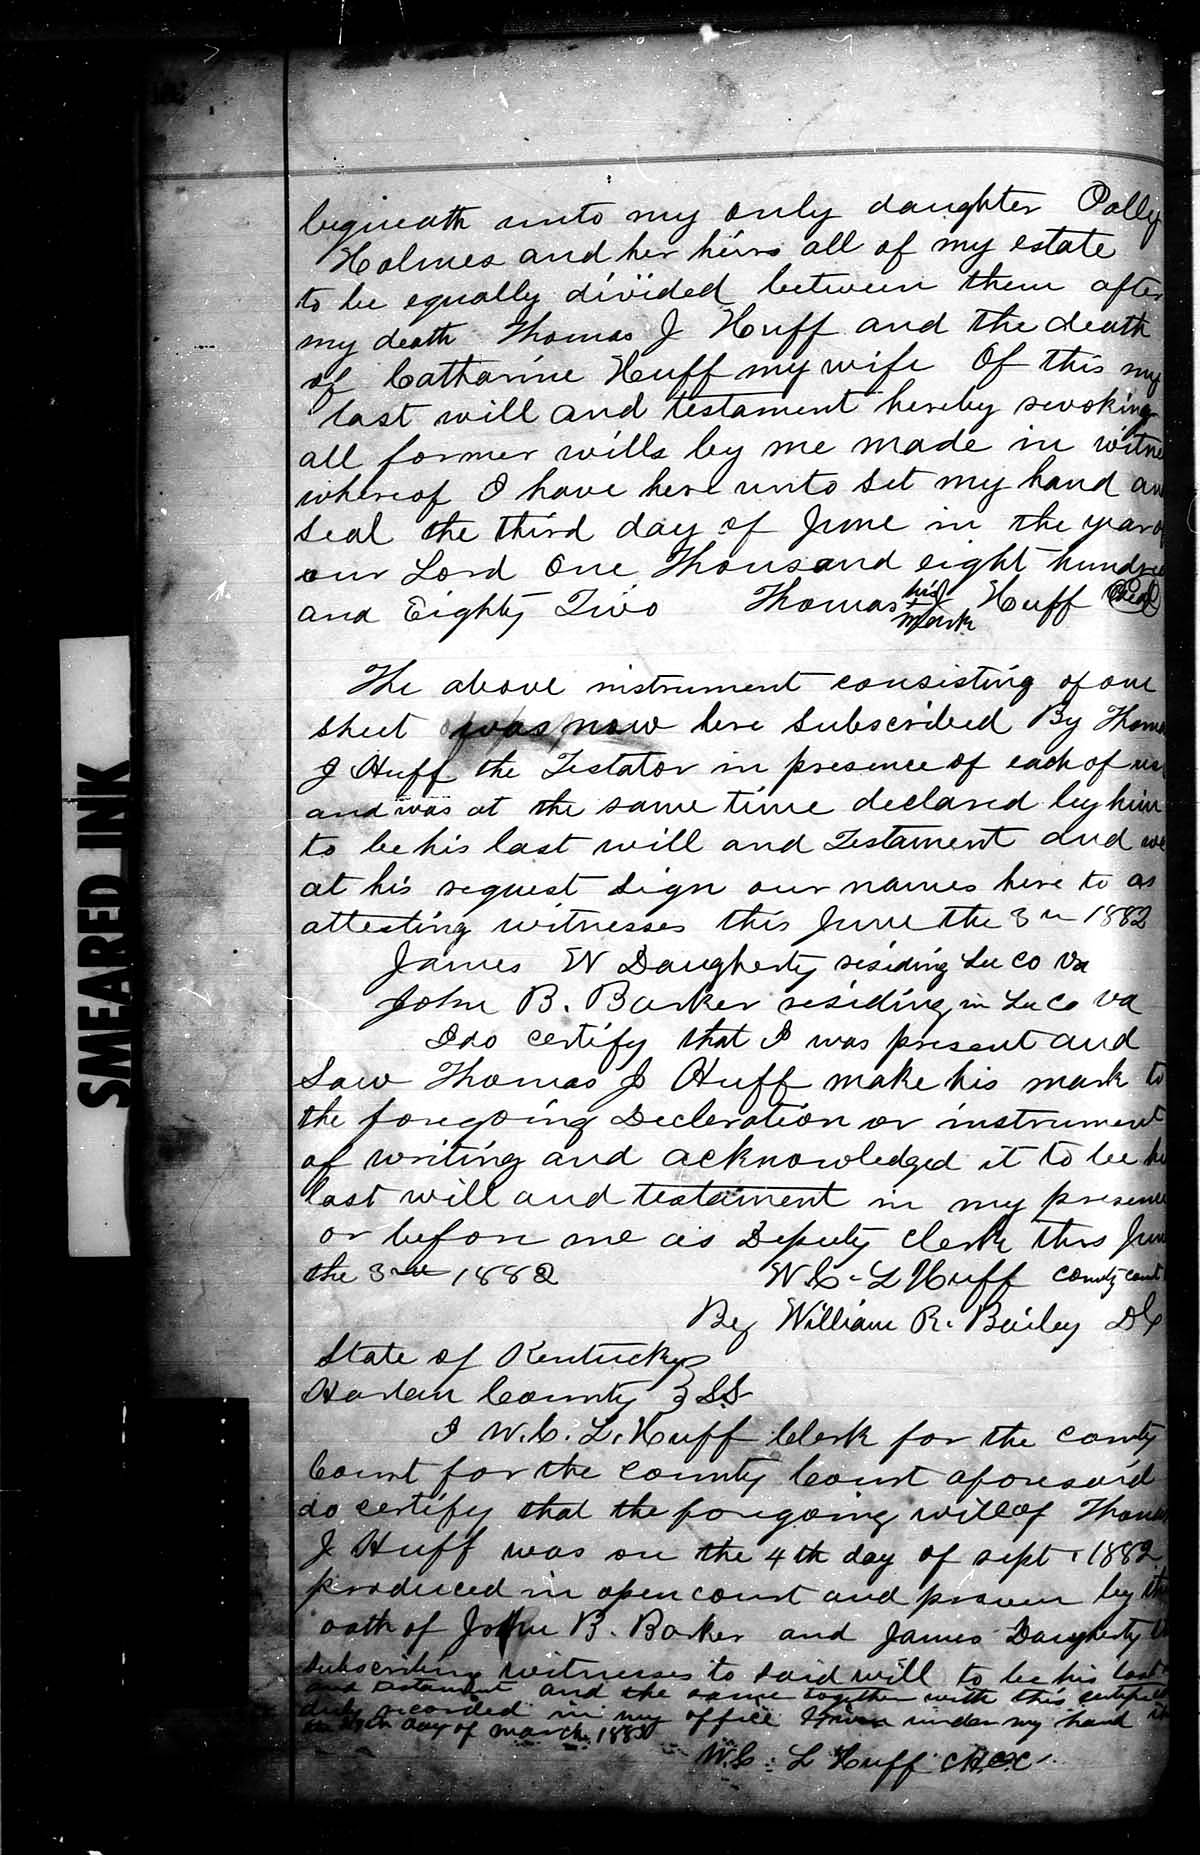 bequeath unto my only daughter Polly
Holmes and her heirs all of my estate
to be equally divided between them after
my death Thomas J Huff and the death
of Catharine Huff my wife Of this my
last will and testament hereby revoking
all former wills by me made in witne
whereof I have here unto set my hand an
seal the third day of June in the year of
our Lord One Thousand eight hundre
and Eighty Two Thomas his J Huff Seal
+
mark
The above instrument consisting of one
sheet was now here Subscribed By Thom
J Huff the Testator in presence of each of us
and was at the same time declared by him
to be his last will and Testament and we
at his request sign our names here to as
attesting witnesses this June the 3 1882
James W Daugherty residing Lee Co Va
John B. Barker residing in Lee Co Va
I do certify that I was present and
Saw Thomas J Huff make his mark to
the foregoing Decleration or instrument
of writing and acknowledged it to be hi
last will and testament in my presence
or before me as Deputy clerk this June
the 3rd 1882 W.C. L Huff County court
By William R. Bailey DC
State of Kentucky
Harlan County } SS
I W.C. L. Huff Clerk for the county
Court for the County Court aforesaid
do certify that the foregoing will of Thomas
J Huff was on the 4th day of sept 1882
produced in open court and proven by the
oath of John B. Barker and James Daugherty
Subscribing witnesses to said will to be his last
and testament and the same together with this certific
duly recorded in my office Given under my hand
day of March 188
W.C. L Huff C.H.C.C.
SMEARED INK